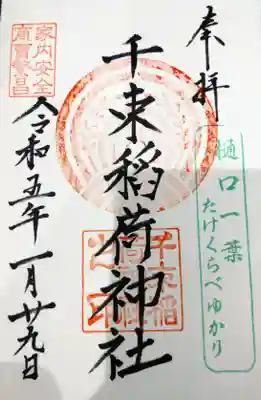 奉拝
樋口一葉
たけくらべゆかり
千束稲荷神社
千束稲荷神社之印
家内安全
商賣繁昌
令和五年一月廿九日